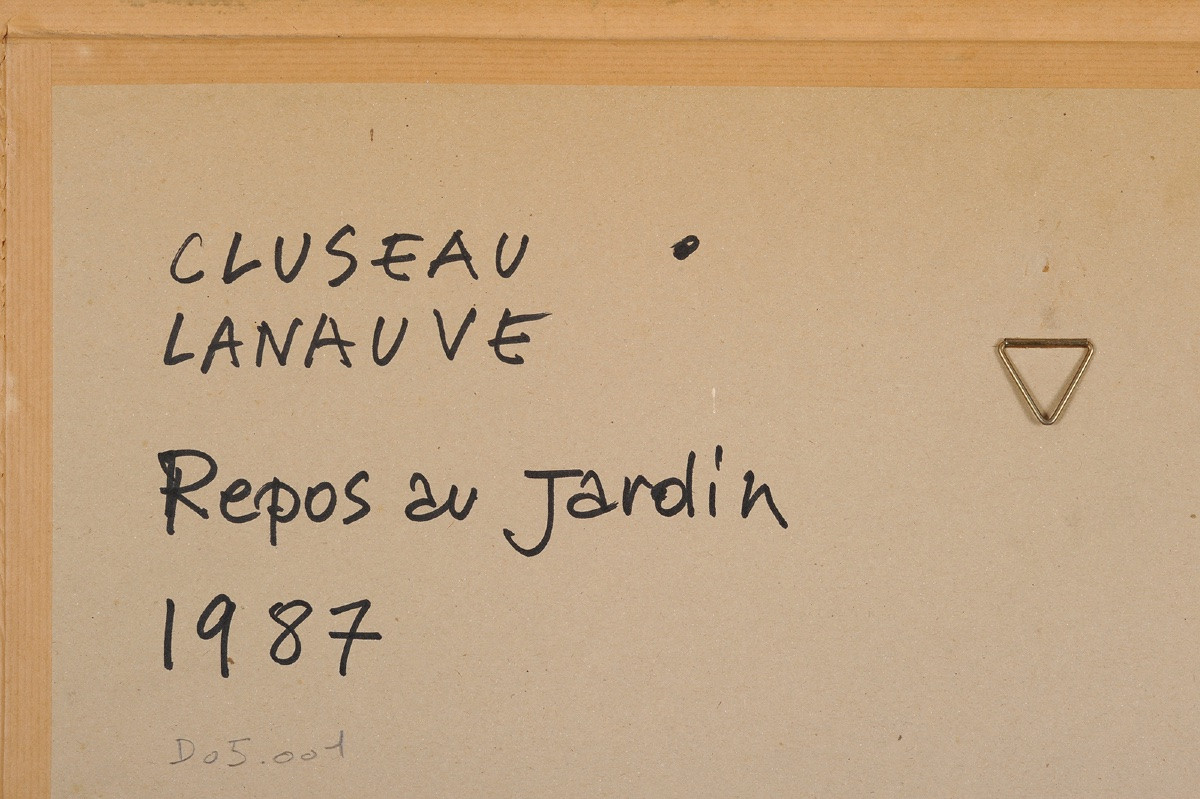 CLUSEAU
LANAUVE
Repos au Jardin
1987
D05.001